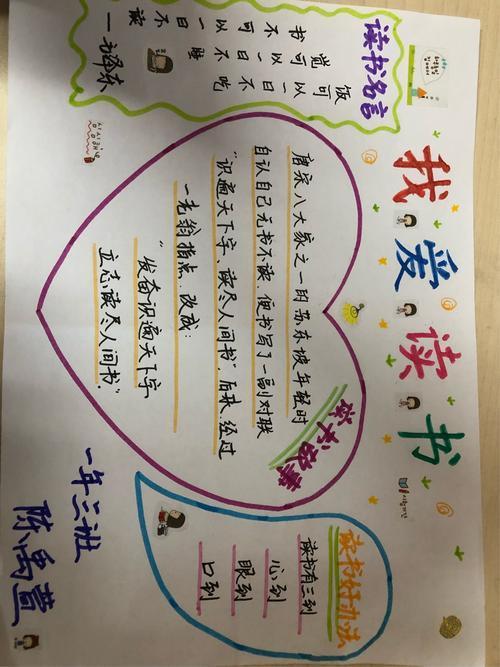 我爱读书
读书名言
饭可以一日不吃
觉可以一日不睡
书不可以一日不读
——毛泽东
读书故事
唐宋八大家之一的苏东坡年轻时
自认自己无书不读,便书写了一副对联
“识遍天下字,读尽人间书”,后来,经过
一老翁指点,改成:
“发奋识遍天下字
立志读尽人间书”
读书好办法
读书有三到
心到
眼到
口到
一年三班
陈禹萱